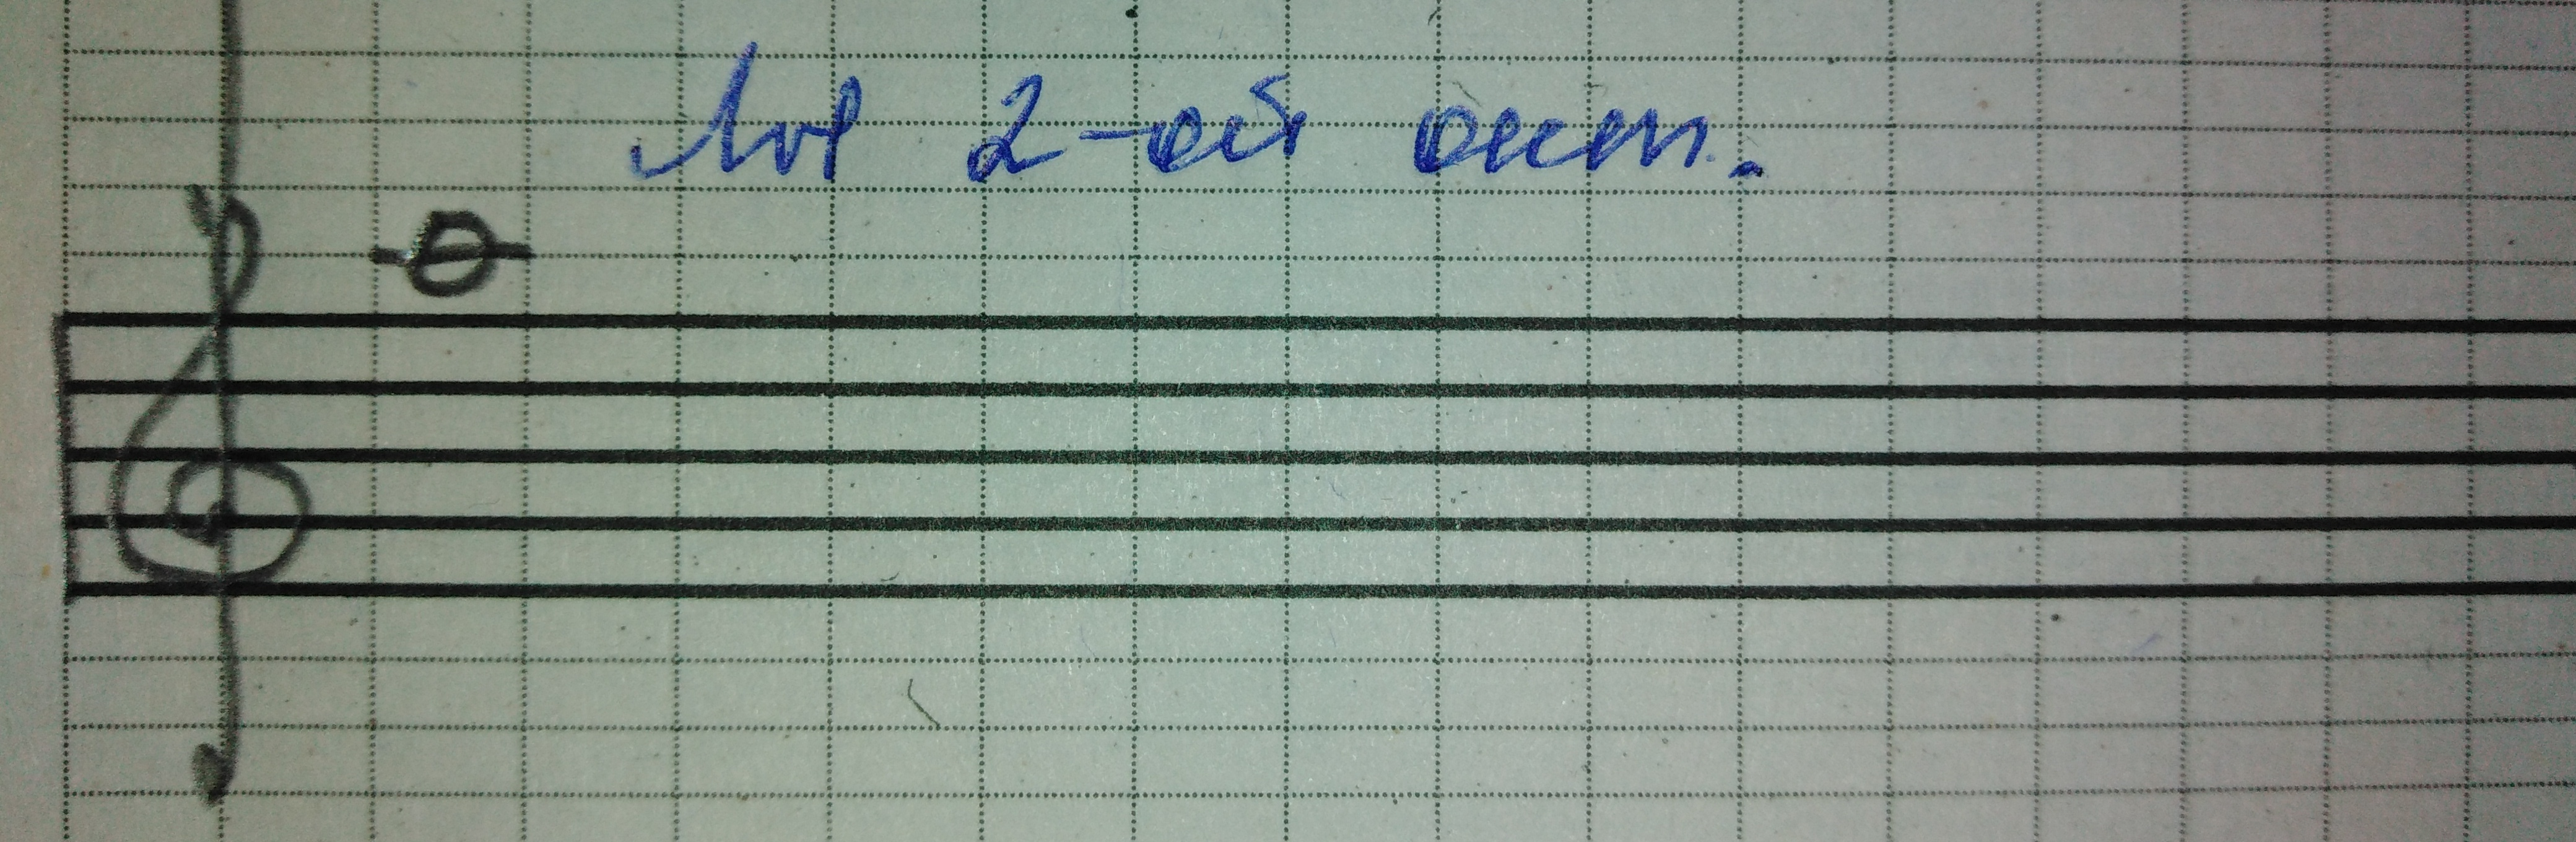 Ля 2-ой окт.